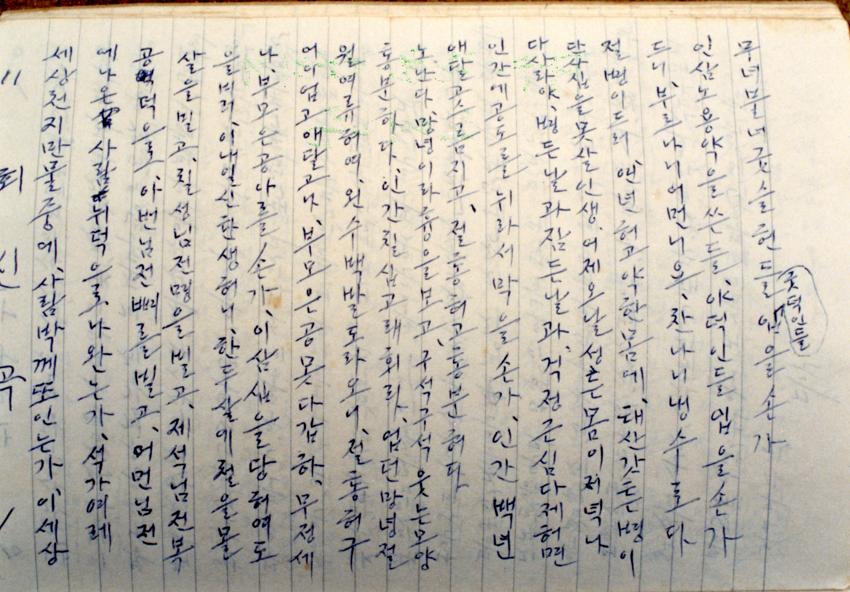 〃 회 신 곡
세상천지만물중에, 사람박께또인는가, 이세상
에나온사람뉘덕으로, 나완는가, 석가여레
공덕으로, 아번님전뼈를빌고, 어먼님전
살을빌고, 칠성님전명을빌고, 제석님전복
을빌러, 이내일신탄생허니, 한두살에철을몰
나, 부모은공아를손가, 이삼십을당허여도
어이업고애달고나, 부모은공못다갑하, 무정세
월여류허여, 원수백발도라오니, 절통허구
통분하다, 인간칠십고래희라, 업던망녕절
노난다, 망녕이라륭을보고, 구석구석웃는모양
애달고스름지고, 절통허고통분허다
인간에공도를뉘라서막을손가, 인간백년
다사라야, 병든날과잠든날과, 걱정근심다제허면
단사십을못살인생, 어제오날성튼몸이저녁나
절병이드러, 애년허고약한몸에, 태산갓튼병이
드니, 부르나니어먼니요, 찬나니냉수로다
인삼노용약을쓴들, 약덕인들입을손가
무녀불너굿슬헌들 굿덕인들 입을손가